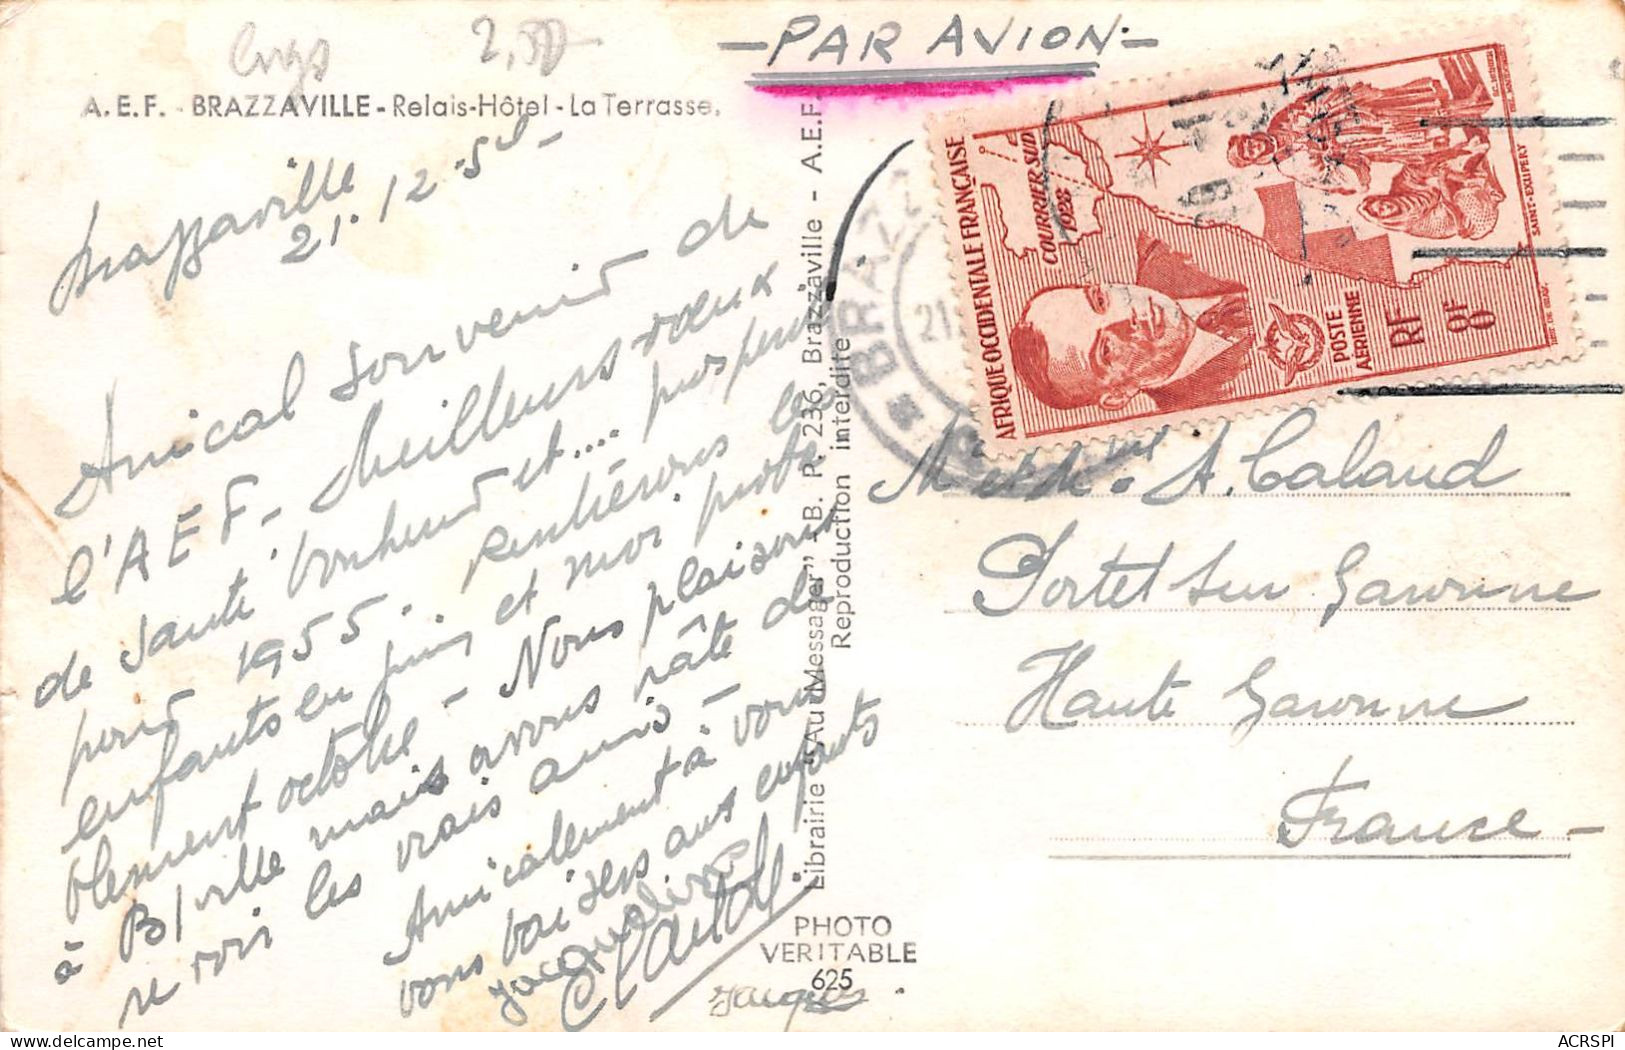 Congo 2,50-
- PAR AVION -
A. E. F. - BRAZZAVILLE - Relais-Hôtel - La Terrasse.
Brazzaville
21.12.54-
Amical souvenir de
l'AEF - Meilleurs voeux
de santé bonheur et....
pour 1955. Rentrerons les
enfants en juin, et moi
blement octobre - Nous plaisons
à B/ville mais avons hâte de
revoir les vrais amis -
Amicalement à vous
bons baisers aux enfants
Jacqueline
Claude
Jacques.
Librairie "Au Messager" - B. P. 236, Brazzaville - A.E.F.
Reproduction interdite
PHOTO
VERITABLE
625
BRAZZ
21
AFRIQUE OCCIDENTALE FRANÇAISE
COURRIER SUD
1928
POSTE
AERIENNE
RF
8F
SAINT-EXUPERY
Mr et Mme A. Calaud
Portet sur Garonne
Haute Garonne
France -
ACRSPI